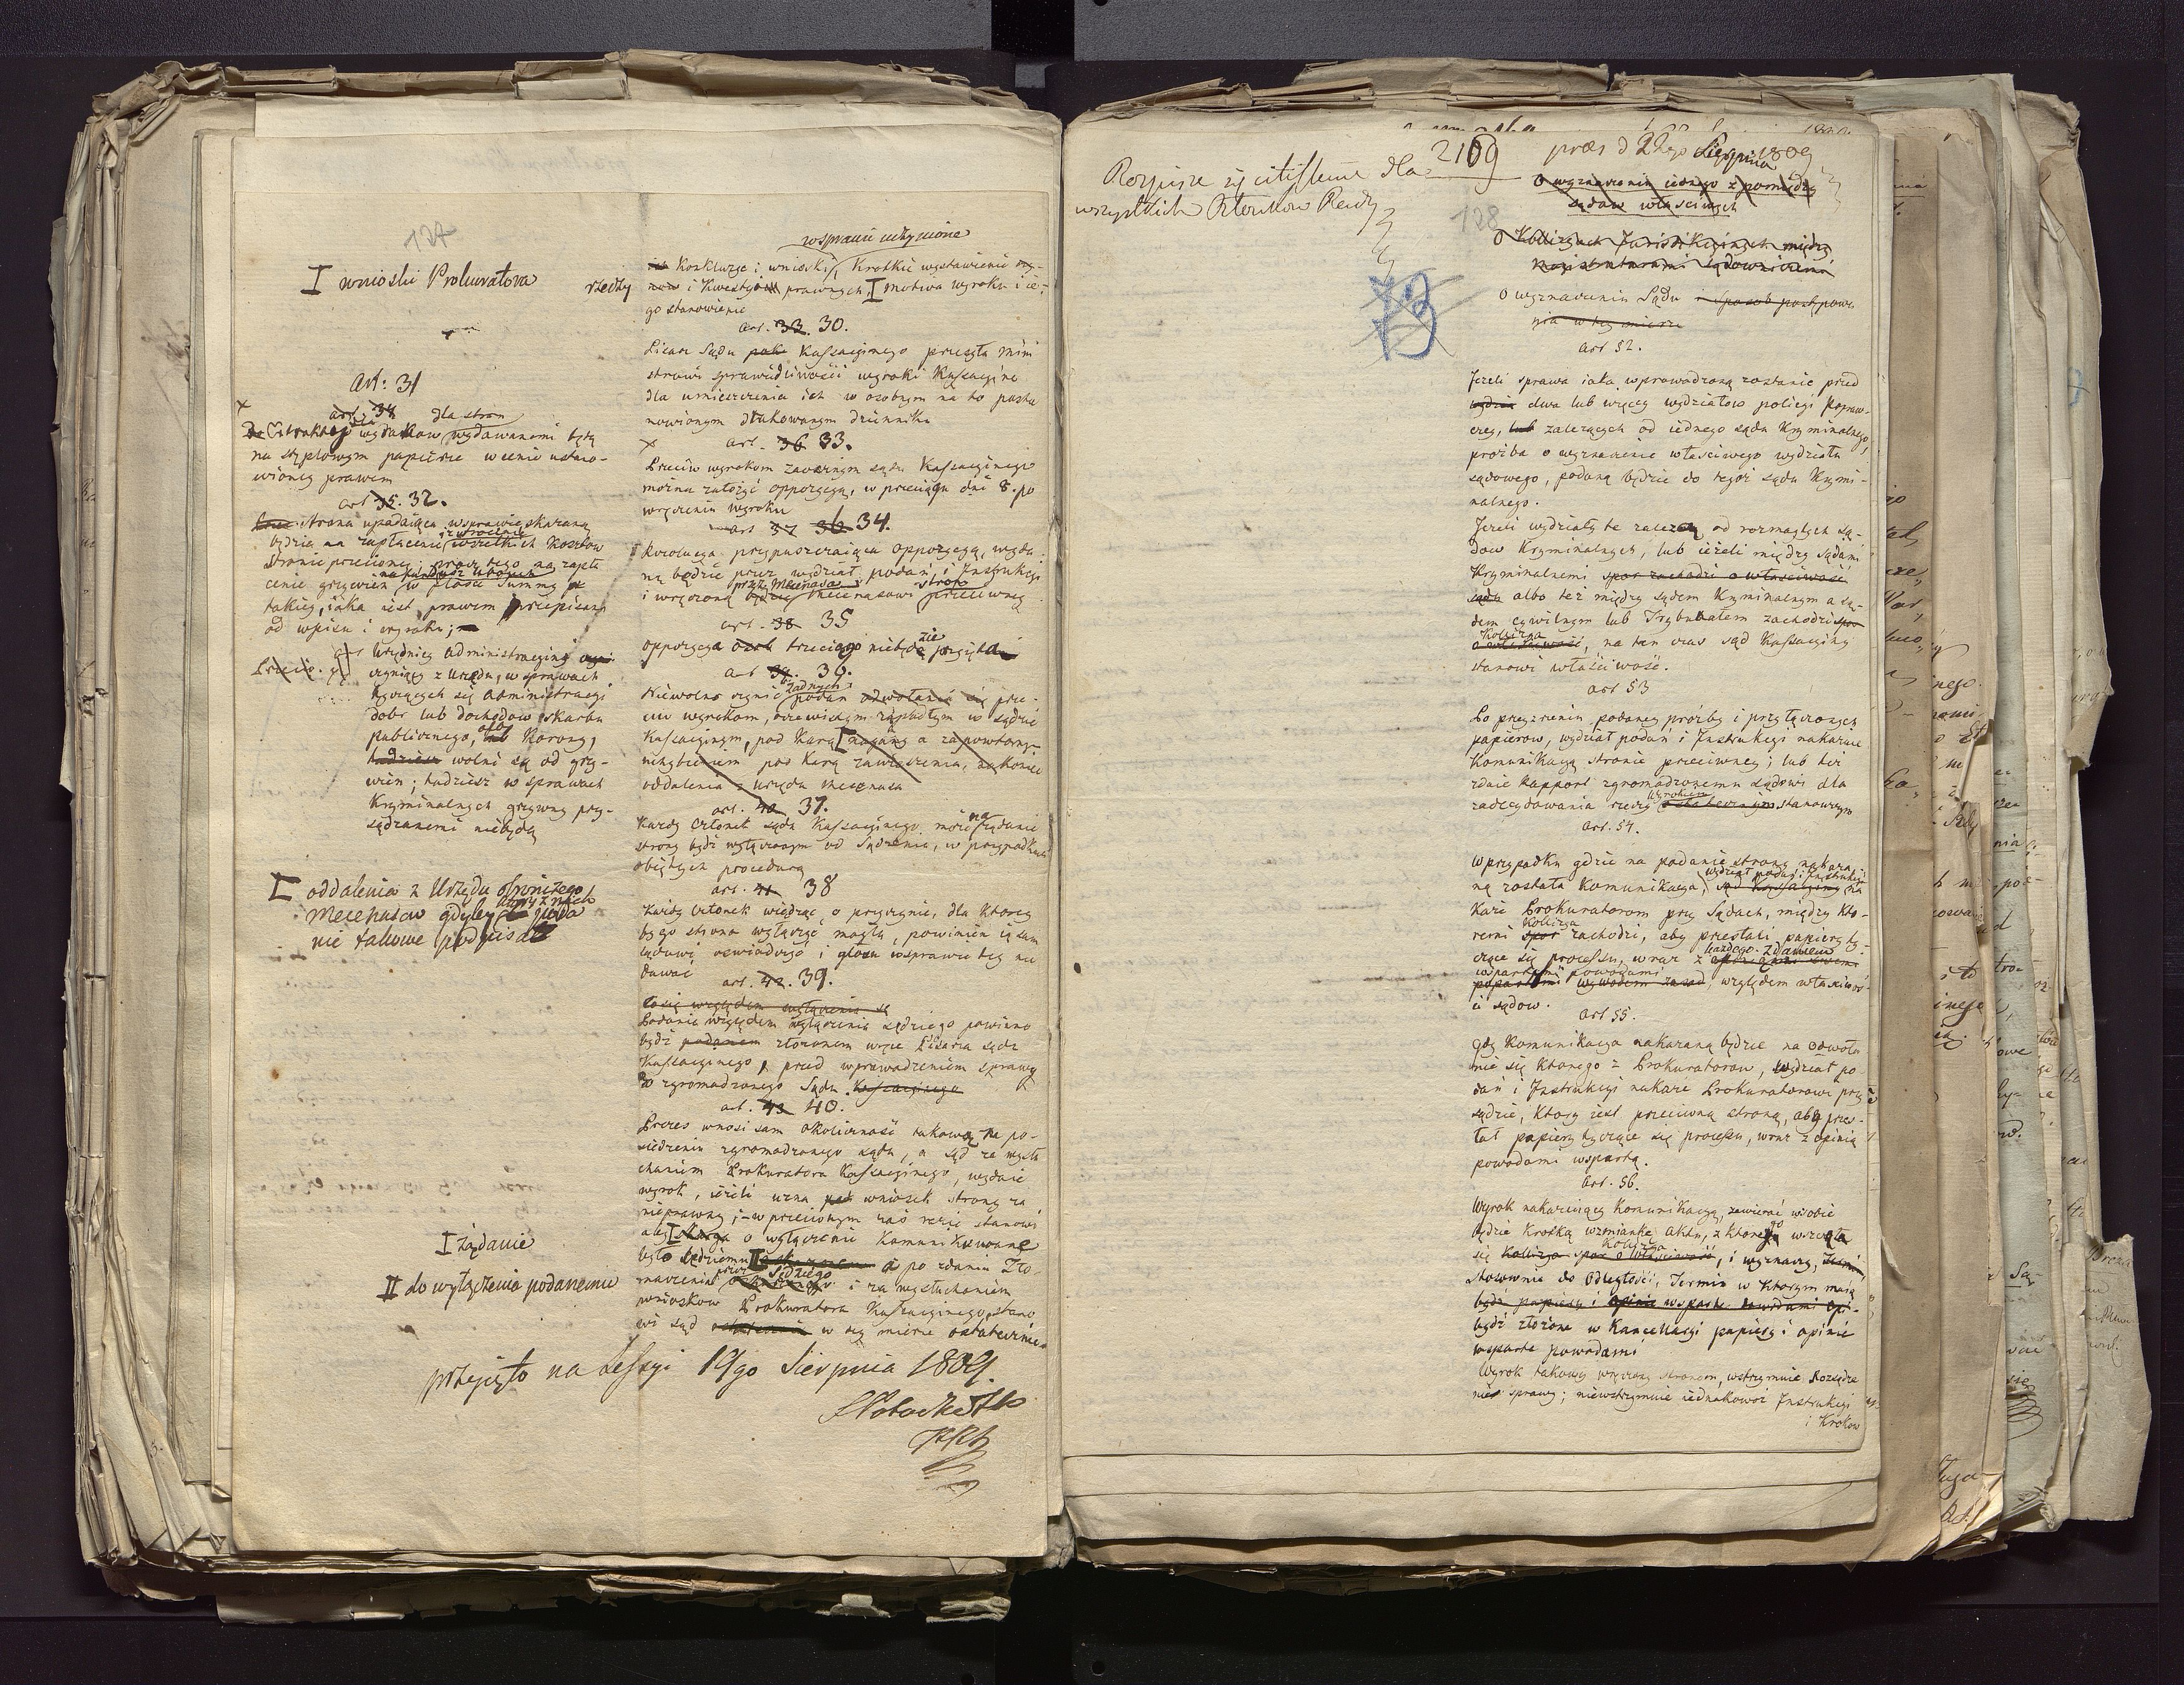 127
I wnioski Prokuratora
Art: 31
art. 34 dla stron
wydawanemi będą
na stęplowym papierze w cenie ustano-
wioney prawem
art 35. 32.
strona upadaiąca w sprawie skazaną
będzie na zapłacenie wszelkich kosztow
stronie przeciwney, prócz tego na zapła
cenie grzywien
takiey, iaka iest prawem przepisana
od wpisu i wyroku;
Urzędnicy administracyini
czyniący z urzędu, w sprawach
tyczących się administracyi
dobr lub dochodow skarbu
publicznego, Korony,
wolni są od grzy-
wien; tudzież w sprawach
kryminalnych grzywny przy-
sądzanemi niebędą
I oddalenia z Urzędu
Mecenasow gdyby poda
nie takowe podpisał
I żądanie
II do wyłączenia podanemu
w sprawie uczynione
Konkluzye i wnioski, krotkie wystawienie
rzeczy i kwestyi prawnych, I motiwa wyroku i ie-
go stanowienie
art. 33. 30.
Pisarz Sądu Kassacyinego przeszła mini
strowi sprawiedliwości wyroki Kassacyine
dla umieszczenia ich w osobnym na to posta
nowionym drukowanym dzienniku
x art. 36 33.
Przeciw wyrokom zaocznym sądu Kassacyinego
można założyć oppozycyą, w przeciągu dni 8. po
wręczeniu wyroku
art 37 36 34.
Rezolucya przypuszczaiąca oppozycyą, wyda
ną będzie przez wydział podań i Instrukcyi
przez Mecenasa strony
i wręczoną będzie mecenasowi przeciwney
art. 38 35
oppozycya trzeciego niebędzie przyięta
art 36.
Niewolno czynić żadnych podań odwołania się prze-
ciw wyrokom, oczewistym zapadłym w sądzie
Kassacyinym, pod karą I naganą a za powtornym
uchybieniem pod karą zawieszenia, nakoniec
oddalenia z urzędu mecenasa
art. 40 37.
Każdy członek sądu Kassacyinego może na żądanie
strony bydź wyłączonym od sądzenia, w przypadkach
obiętych procedurą
art. 41 38
Każdy członek wiedząc o przyczynie, dla ktorey
by go strona wyłączyć mogła, powinien ią sam
sądowi oświadczyć i głosu w sprawie tey nie
dawać
art. 42. 39.
Podanie względem wyłączenia sędziego powinno
bydź podanem złożonem w ręce Pisarza sądu
Kassacyinego, przed wprowadzeniem sprawy
do zgromadzonego Sądu Kassacyinego
art. 43 40.
Prezes wnosi sam okoliczność takową na po-
siedzeniu zgromadzonego sądu, a sąd za wysłu
chaniem Prokuratora Kassacyinego, wydaie
wyrok, ieżeli uzna wniosek strony za
nieprawny; w przeciwnym zaś razie stanowi
aby I skarga o wyłączenie kommunikowane
było Sędziemu II a po zdaniu
przez Sędziego i za wysłuchaniem
wniosków Prokuratora Kassacyinego, stano
wi sąd w tey mierze ostatecznie
przyięto na Sessyi 19go Sierpnia 1809.
2109
præs d 22go Sierpnia 1809
Rozpisze się citissime dla
wszystkich Członkow Rady
128
73
O wyznaczeniu iednego z pomiędzy
sądow właściwych
O Kollizyach Jurisdikcyinych między
Magistraturami sądowniczemi
O wyznaczeniu Sądu i sposob postępowa
nia w tey mierze
art 52.
Jeżeli sprawa iaka wprowadzoną zostanie przed
wydział dwa lub więcey wydziałow policyi Popraw-
czey, lub zależących od iednego sądu Kryminalnego,
prośba o wyznaczenie właściwego wydziału
sądowego, podaną będzie do tegoż sądu Krymi-
nalnego.
Jeżeli wydziały te zależą od rozmaitych są-
dow Kryminalnych, lub ieżeli między sądami
Kryminalnemi spor zachodzi o właściwość
sądu albo też między sądem Kryminalnym a są-
dem cywilnym lub Trybunałem zachodzi spor
Kollizya
o właściwość, na ten czas sąd Kassacyiny
stanowi właściwość.
art 53
Po przyzreniu podaney prośby i przyłączonych
papierow, wydział podań i Instrukcyi nakazuie
Kommunikacyą stronie przeciwney; lub też
zdaie Rapport zgromadzonemu sądowi dla
zadecydowania rzeczy wyrokiem ostatecznym stanowczym
Art. 54.
W przypadku gdzie na podanie strony nakaza-
wydział podań i Instrukcyi
ną zostałа Kommunikacya, sąd Kassacyiny na
każe Prokuratorom przy Sądach, między kto-
Kollizya
remi spor zachodzi, aby przesłali papiery ty-
każdego zdaniem
czące się processu, wraz z opiniami swemi
wspartemi powodami
popartemi wywodem zasad, względem właściwoś-
ci sądow.
Art 55.
Gdy Kommunikacya nakazaną będzie na odwoła
nie się ktorego z Prokuratorow, wydział po-
dań i Instrukcyi nakaże Prokuratorowi przy
sądzie, ktory iest przeciwną stroną, aby przes-
łał papiery tyczące się processu, wraz z opinią
powodami wspartą.
Art. 56.
Wyrok nakazuiący Kommunikacyą, zawierać w sobie
będzie krotką wzmiankę aktu, z ktorego wszczęła
Kollizya
się Kollizya spor o właściwość, i wyznaczy,
stosownie do odległości, Termin w ktorym maią
bydź papiery i opinie wsparte powodami
bydź złożone w Kancellaryi papiery i opinie
wsparte powodami
Wyrok takowy wręczony stronom, wstrzymuie Rozsądze
nie sprawy; niewstrzymuie iednakowoż Instrukcyi
i Krokow